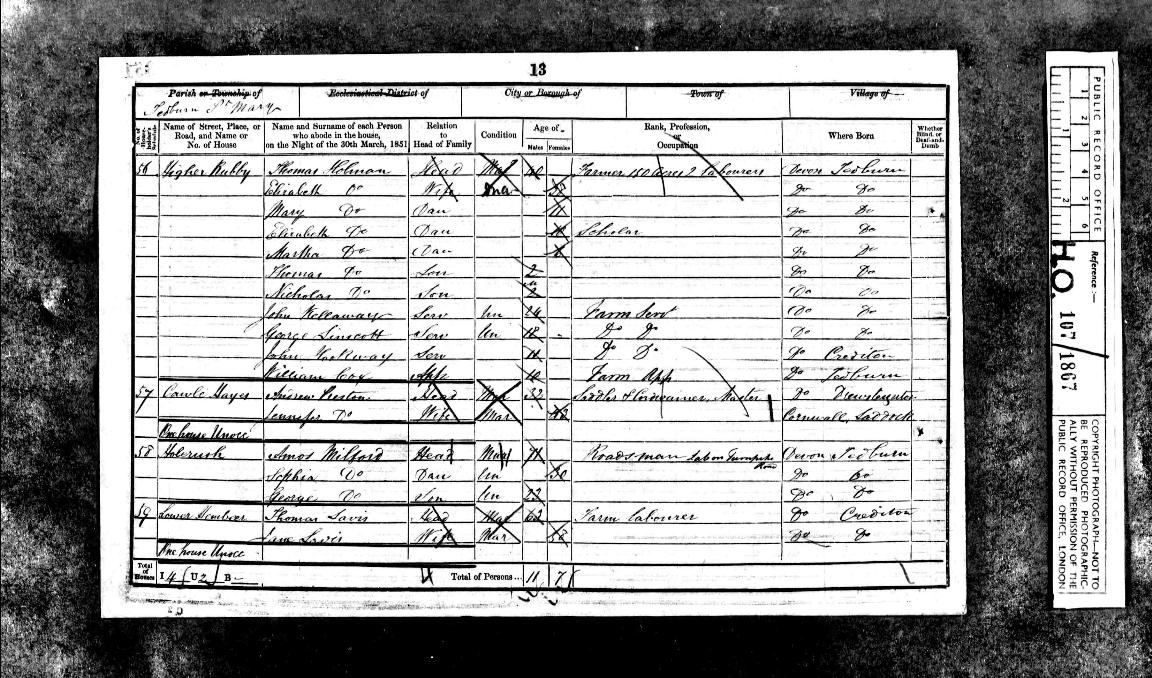 13
Parish or Township of
Ecclesiastical District of
City or Borough of
Town of
Village of
Tedburn St Mary
No. of House-holder's Schedule
Name of Street, Place, or Road, and Name or No. of House
Name and Surname of each Person who abode in the house, on the Night of the 30th March, 1851
Relation to Head of Family
Condition
Age of
Males
Females
Rank, Profession, or Occupation
Where Born
Whether Blind, or Deaf-and-Dumb
56 Higher Rubby Thomas Holman Head Mar 40 Farmer 150 acres 2 Labourers Devon Tedburn
Elizabeth Do Wife Do Do
Mary Do Dau 11 Do Do
Elizabeth Do Dau Scholar Do Do
Martha Do Dau Do Do
Thomas Do Son 2 Do Do
Nicholas Do Son Do Do
John Kellaway Serv Un 24 Farm Serv Do Do
George Linscott Serv Un 18 Do Do Do Do
John Serv 11 Do Do Do Crediton
William Cox App 10 Farm App Do Tedburn
57 Cawle Hayes Andrew Preston Head Mar 32 Saddler & Cordwainer, Master Do Drewsteignton
Jennifer Do Wife Mar Cornwall, Ladock
One house Unocc
58 Amos Milford Head 71 Roadsman Lab on Turnpike Road Devon Tedburn
Sophia Do Dau Un 30 Do Do
George Do Son Un 23 Do Do
59 Lower Thomas Davis Head Mar 62 Farm labourer Do Crediton
Jane Davis Wife Mar 58 Do Do
One house Unocc
Total of Houses I 4 U 2 B – Total of Persons... 11 7
PUBLIC RECORD OFFICE
1 2 3 4 5 6
1 2
Reference :-
H.O. 107/1867
COPYRIGHT PHOTOGRAPH—NOT TO BE REPRODUCED PHOTOGRAPHIC-ALLY WITHOUT PERMISSION OF THE PUBLIC RECORD OFFICE, LONDON